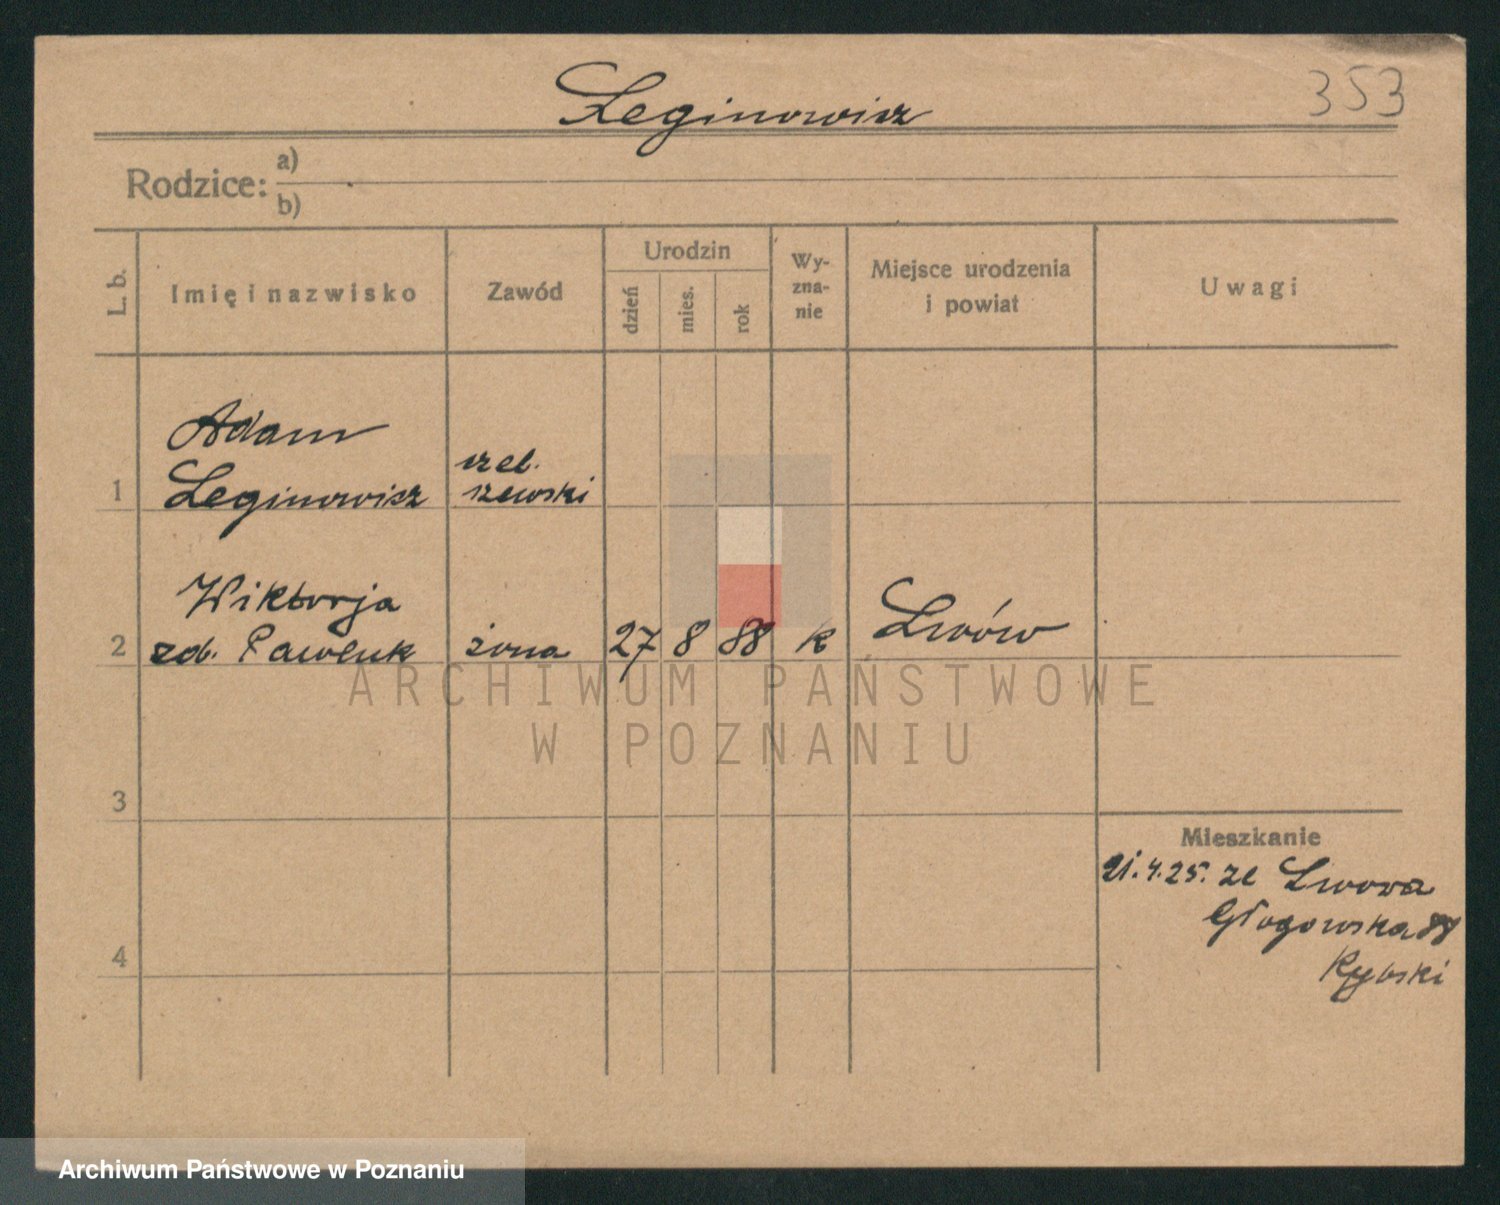 Leginowicz
353
Rodzice: a)
b)
L. b.
Imię i nazwisko
Zawód
Urodzin
dzień
mies.
rok
Wy-
zna-
nie
Miejsce urodzenia
i powiat
Uwagi
Adam
czel.
1 Leginowicz szewski
Wiktorja
2 zd. Pawluk żona 27 8 88 k Lwów
ARCHIWUM PAŃSTWOWE
W POZNANIU
3
Mieszkanie
21.4.25. ze Lwowa
Głogowska 88
Rybski
4
Archiwum Państwowe w Poznaniu